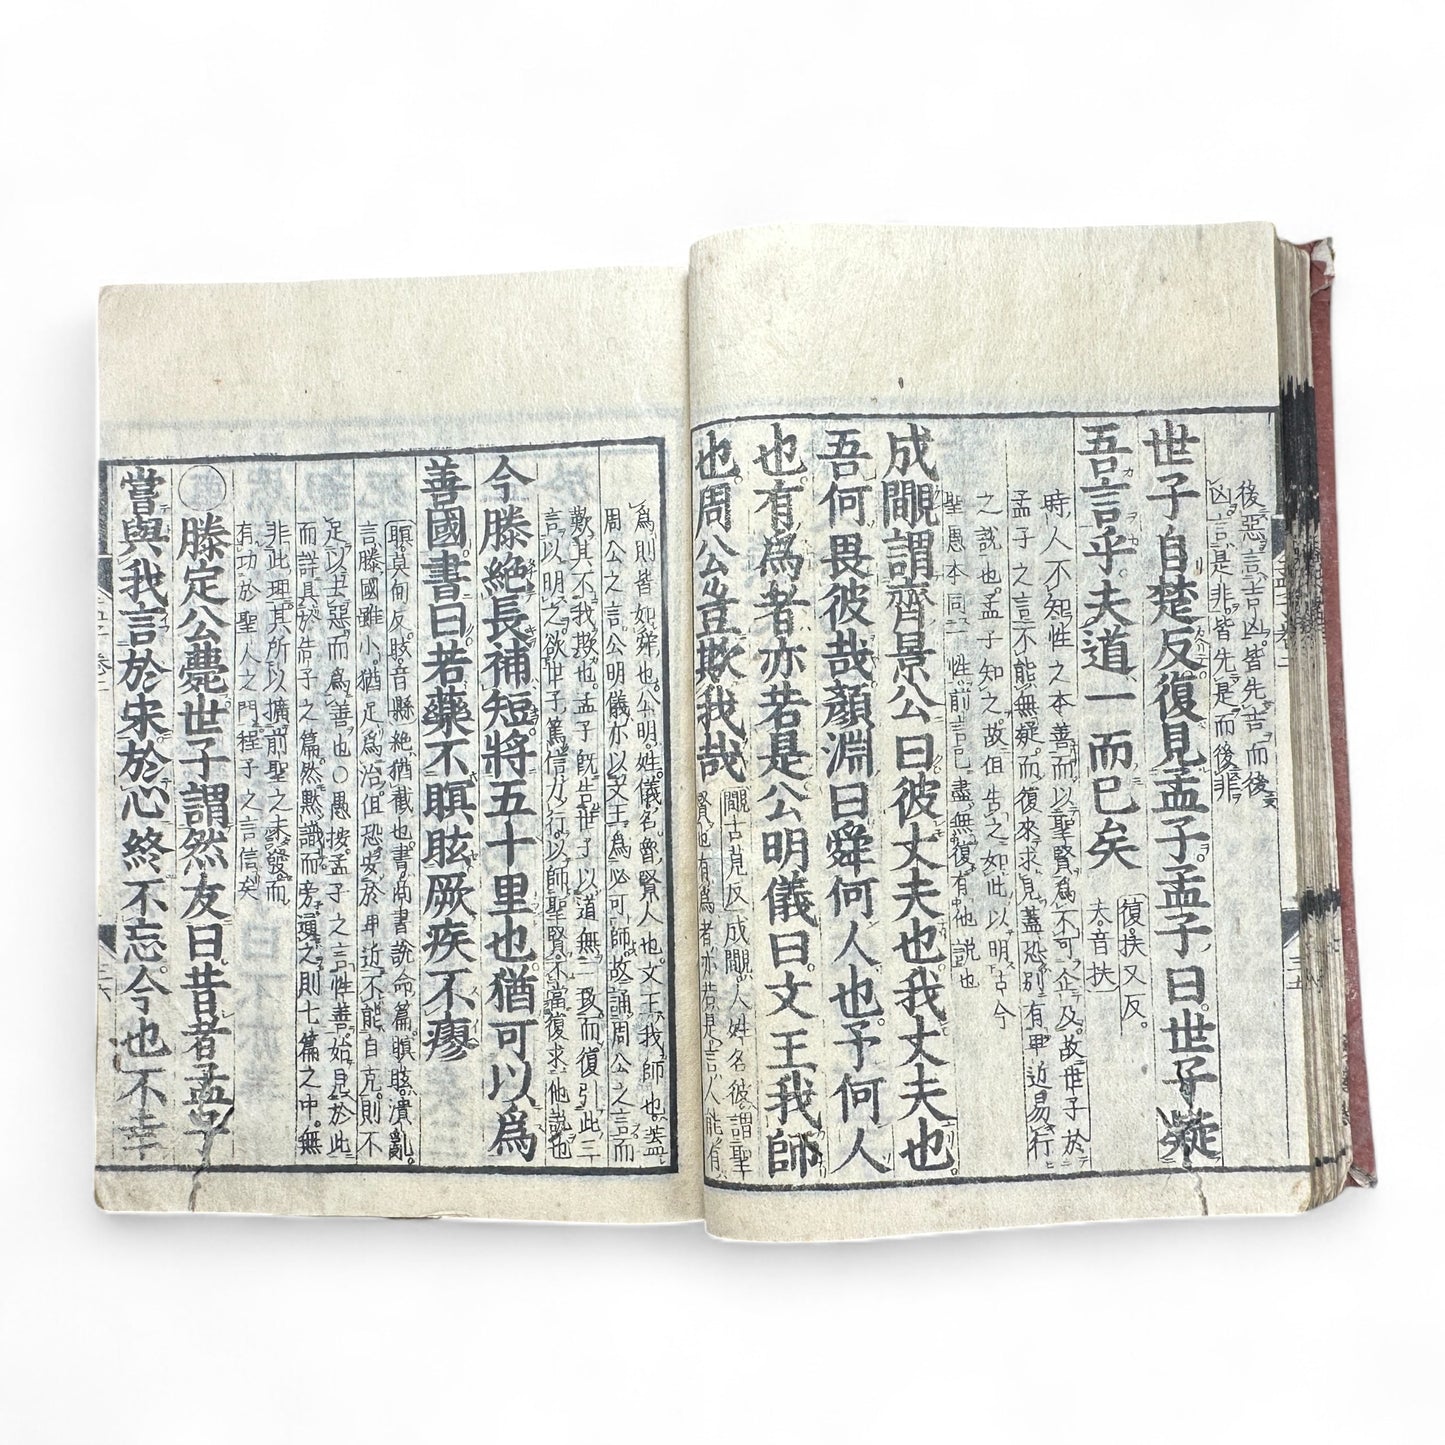 後惡言吉凶皆先吉而後
凶言是非皆先是而後非
世子自楚反復見孟子孟子曰世子疑
吾言乎夫道一而已矣
復扶又反
夫音扶
時人不知性之本善而以聖賢爲不可企及故世子於
孟子之言不能無疑而復來求見蓋恐別有卑近易行
之説也孟子知之故但告之如此以明古今
聖愚本同一性前言已盡無復有他説也
成覵謂齊景公曰彼丈夫也我丈夫也
吾何畏彼哉顔淵曰舜何人也予何人
也有爲者亦若是公明儀曰文王我師
也周公豈欺我哉
覵古莧反成覵人姓名彼謂聖
賢也有爲者亦若是言人能有
爲則皆如舜也公明姓儀名魯賢人也文王我師也蓋
周公之言公明儀亦以文王爲必可師故誦周公之言而
歎其不我欺也孟子既告世子以道無二致而復引此三
言以明之欲世子篤信力行以師聖賢不當復求他説也
今滕絶長補短將五十里也猶可以爲
善國書曰若藥不瞑眩厥疾不瘳
瞑莫甸反眩音縣絶猶截也書商書説命篇瞑眩潰亂
言滕國雖小猶足爲治但恐安於卑近不能自克則不
足以去惡而爲善也○愚按孟子之言性善始見於此
而詳具於告子之篇然默識而旁通之則七篇之中無
非此理其所以擴前聖之未發而
有功於聖人之門程子之言信矣
○滕定公薨世子謂然友曰昔者孟子
嘗與我言於宋於心終不忘今也不幸